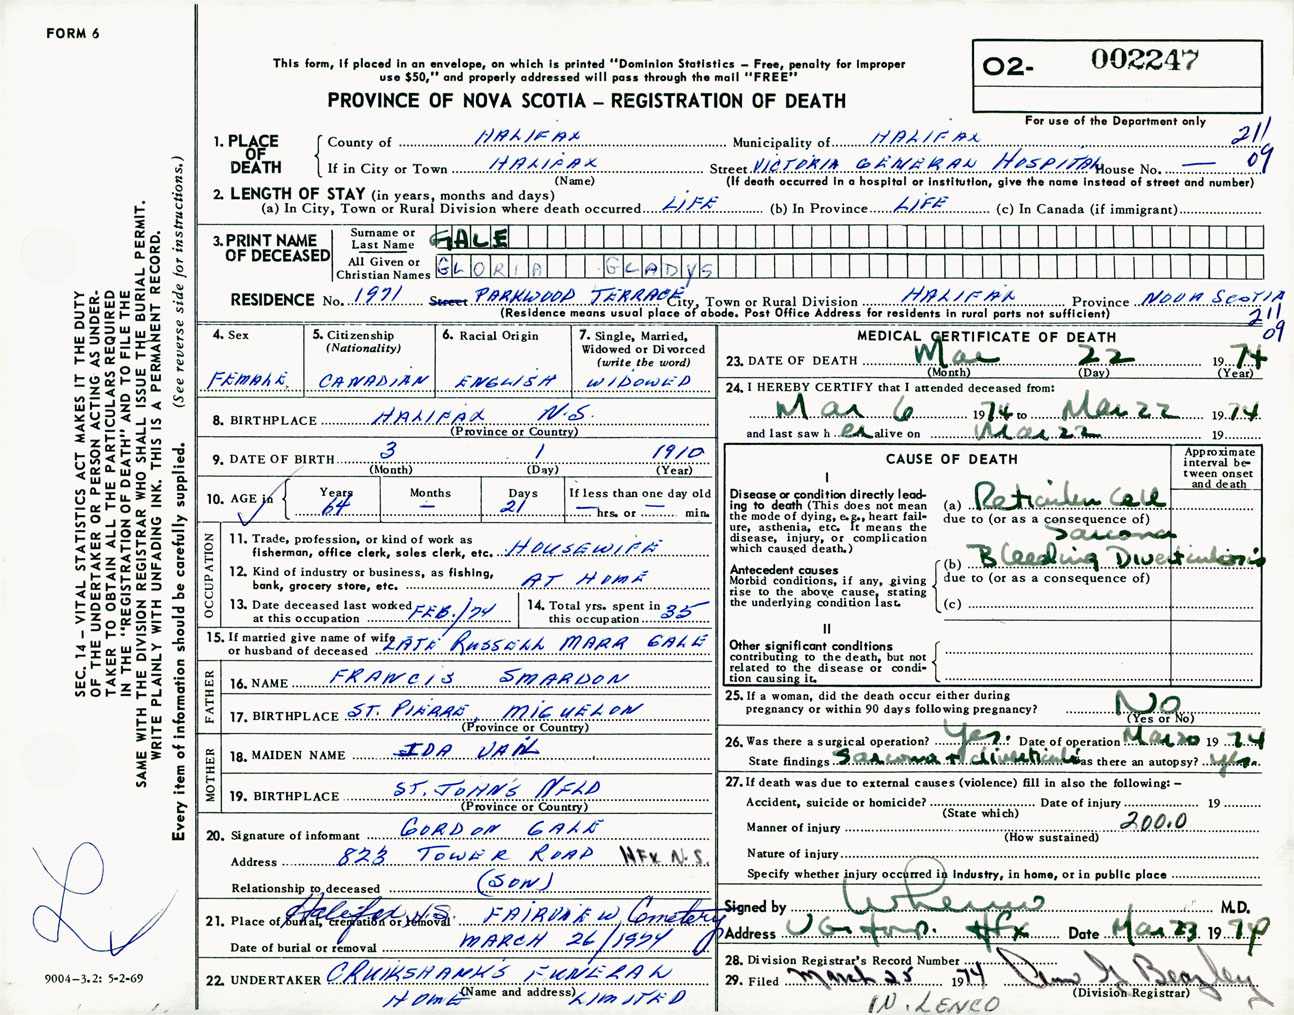 FORM 6
This form, if placed in an envelope, on which is printed "Dominion Statistics – Free, penalty for improper
use $50," and properly addressed will pass through the mail "FREE"
PROVINCE OF NOVA SCOTIA – REGISTRATION OF DEATH
02- 002247
For use of the Department only
211
09
1. PLACE OF DEATH
County of HALIFAX Municipality of HALIFAX
If in City or Town HALIFAX Street VICTORIA GENERAL HOSPITAL House No. —
(Name) (If death occurred in a hospital or institution, give the name instead of street and number)
2. LENGTH OF STAY (in years, months and days)
(a) In City, Town or Rural Division where death occurred LIFE (b) In Province LIFE (c) In Canada (if immigrant)
3. PRINT NAME OF DECEASED
Surname or Last Name GALE
All Given or Christian Names GLORIA GLADYS
RESIDENCE No. 1971 Street PARKWOOD TERRACE City, Town or Rural Division HALIFAX Province NOVA SCOTIA
(Residence means usual place of abode. Post Office Address for residents in rural parts not sufficient)
211
09
4. Sex
FEMALE
5. Citizenship
(Nationality)
CANADIAN
6. Racial Origin
ENGLISH
7. Single, Married,
Widowed or Divorced
(write the word)
WIDOWED
8. BIRTHPLACE HALIFAX N.S.
(Province or Country)
9. DATE OF BIRTH 3 1 1910
(Month) (Day) (Year)
10. AGE in
Years Months Days If less than one day old
64 — 21 — hrs. or — min.
OCCUPATION
11. Trade, profession, or kind of work as
fisherman, office clerk, sales clerk, etc. HOUSEWIFE
12. Kind of industry or business, as fishing,
bank, grocery store, etc. AT HOME
13. Date deceased last worked
at this occupation FEB./74
14. Total yrs. spent in
this occupation 35
15. If married give name of wife
or husband of deceased LATE RUSSELL MARR GALE
FATHER
16. NAME FRANCIS SMARDON
17. BIRTHPLACE ST. PIERRE MIGUELON
(Province or Country)
MOTHER
18. MAIDEN NAME IDA VAIL
19. BIRTHPLACE ST. JOHN'S NFLD
(Province or Country)
20. Signature of informant GORDON GALE
Address 823 TOWER ROAD HFX N.S.
Relationship to deceased (SON)
21. Place of burial, cremation or removal Halifax N.S. FAIRVIEW Cemetery
Date of burial or removal MARCH 26/1974
22. UNDERTAKER CRUIKSHANK'S FUNERAL
(Name and address)
HOME LIMITED
MEDICAL CERTIFICATE OF DEATH
23. DATE OF DEATH Mar 22 1974
(Month) (Day) (Year)
24. I HEREBY CERTIFY that I attended deceased from:
Mar 6 1974 to Mar 22 1974
and last saw her alive on Mar 22 19
CAUSE OF DEATH
Approximate
interval be-
tween onset
and death
I
Disease or condition directly lead-
ing to death (This does not mean
the mode of dying, e.g., heart fail-
ure, asthenia, etc. It means the
disease, injury, or complication
which caused death.)
(a) Reticulum Cell
due to (or as a consequence of)
Sarcoma
(b) Bleeding Diverticulosis
due to (or as a consequence of)
(c)
Antecedent causes
Morbid conditions, if any, giving
rise to the above cause, stating
the underlying condition last.
II
Other significant conditions
contributing to the death, but not
related to the disease or condi-
tion causing it.
25. If a woman, did the death occur either during
pregnancy or within 90 days following pregnancy? No
(Yes or No)
26. Was there a surgical operation? Yes. Date of operation Mar 20 1974
State findings Sarcoma + diverticuli was there an autopsy? yes.
27. If death was due to external causes (violence) fill in also the following: –
Accident, suicide or homicide? Date of injury 19
(State which)
Manner of injury 200.0
(How sustained)
Nature of injury
Specify whether injury occurred in industry, in home, or in public place
Signed by M.D.
Address V G Hosp. Hfx Date Mar 23 1974
28. Division Registrar's Record Number
29. Filed March 25 1974 Beazley
(Division Registrar)
IN. LENCO
SEC. 14 – VITAL STATISTICS ACT MAKES IT THE DUTY
OF THE UNDERTAKER OR PERSON ACTING AS UNDER-
TAKER TO OBTAIN ALL THE PARTICULARS REQUIRED
IN THE "REGISTRATION OF DEATH" AND TO FILE THE
SAME WITH THE DIVISION REGISTRAR WHO SHALL ISSUE THE BURIAL PERMIT.
WRITE PLAINLY WITH UNFADING INK. THIS IS A PERMANENT RECORD.
Every item of information should be carefully supplied. (See reverse side for instructions.)
9004-3.2: 5-2-69